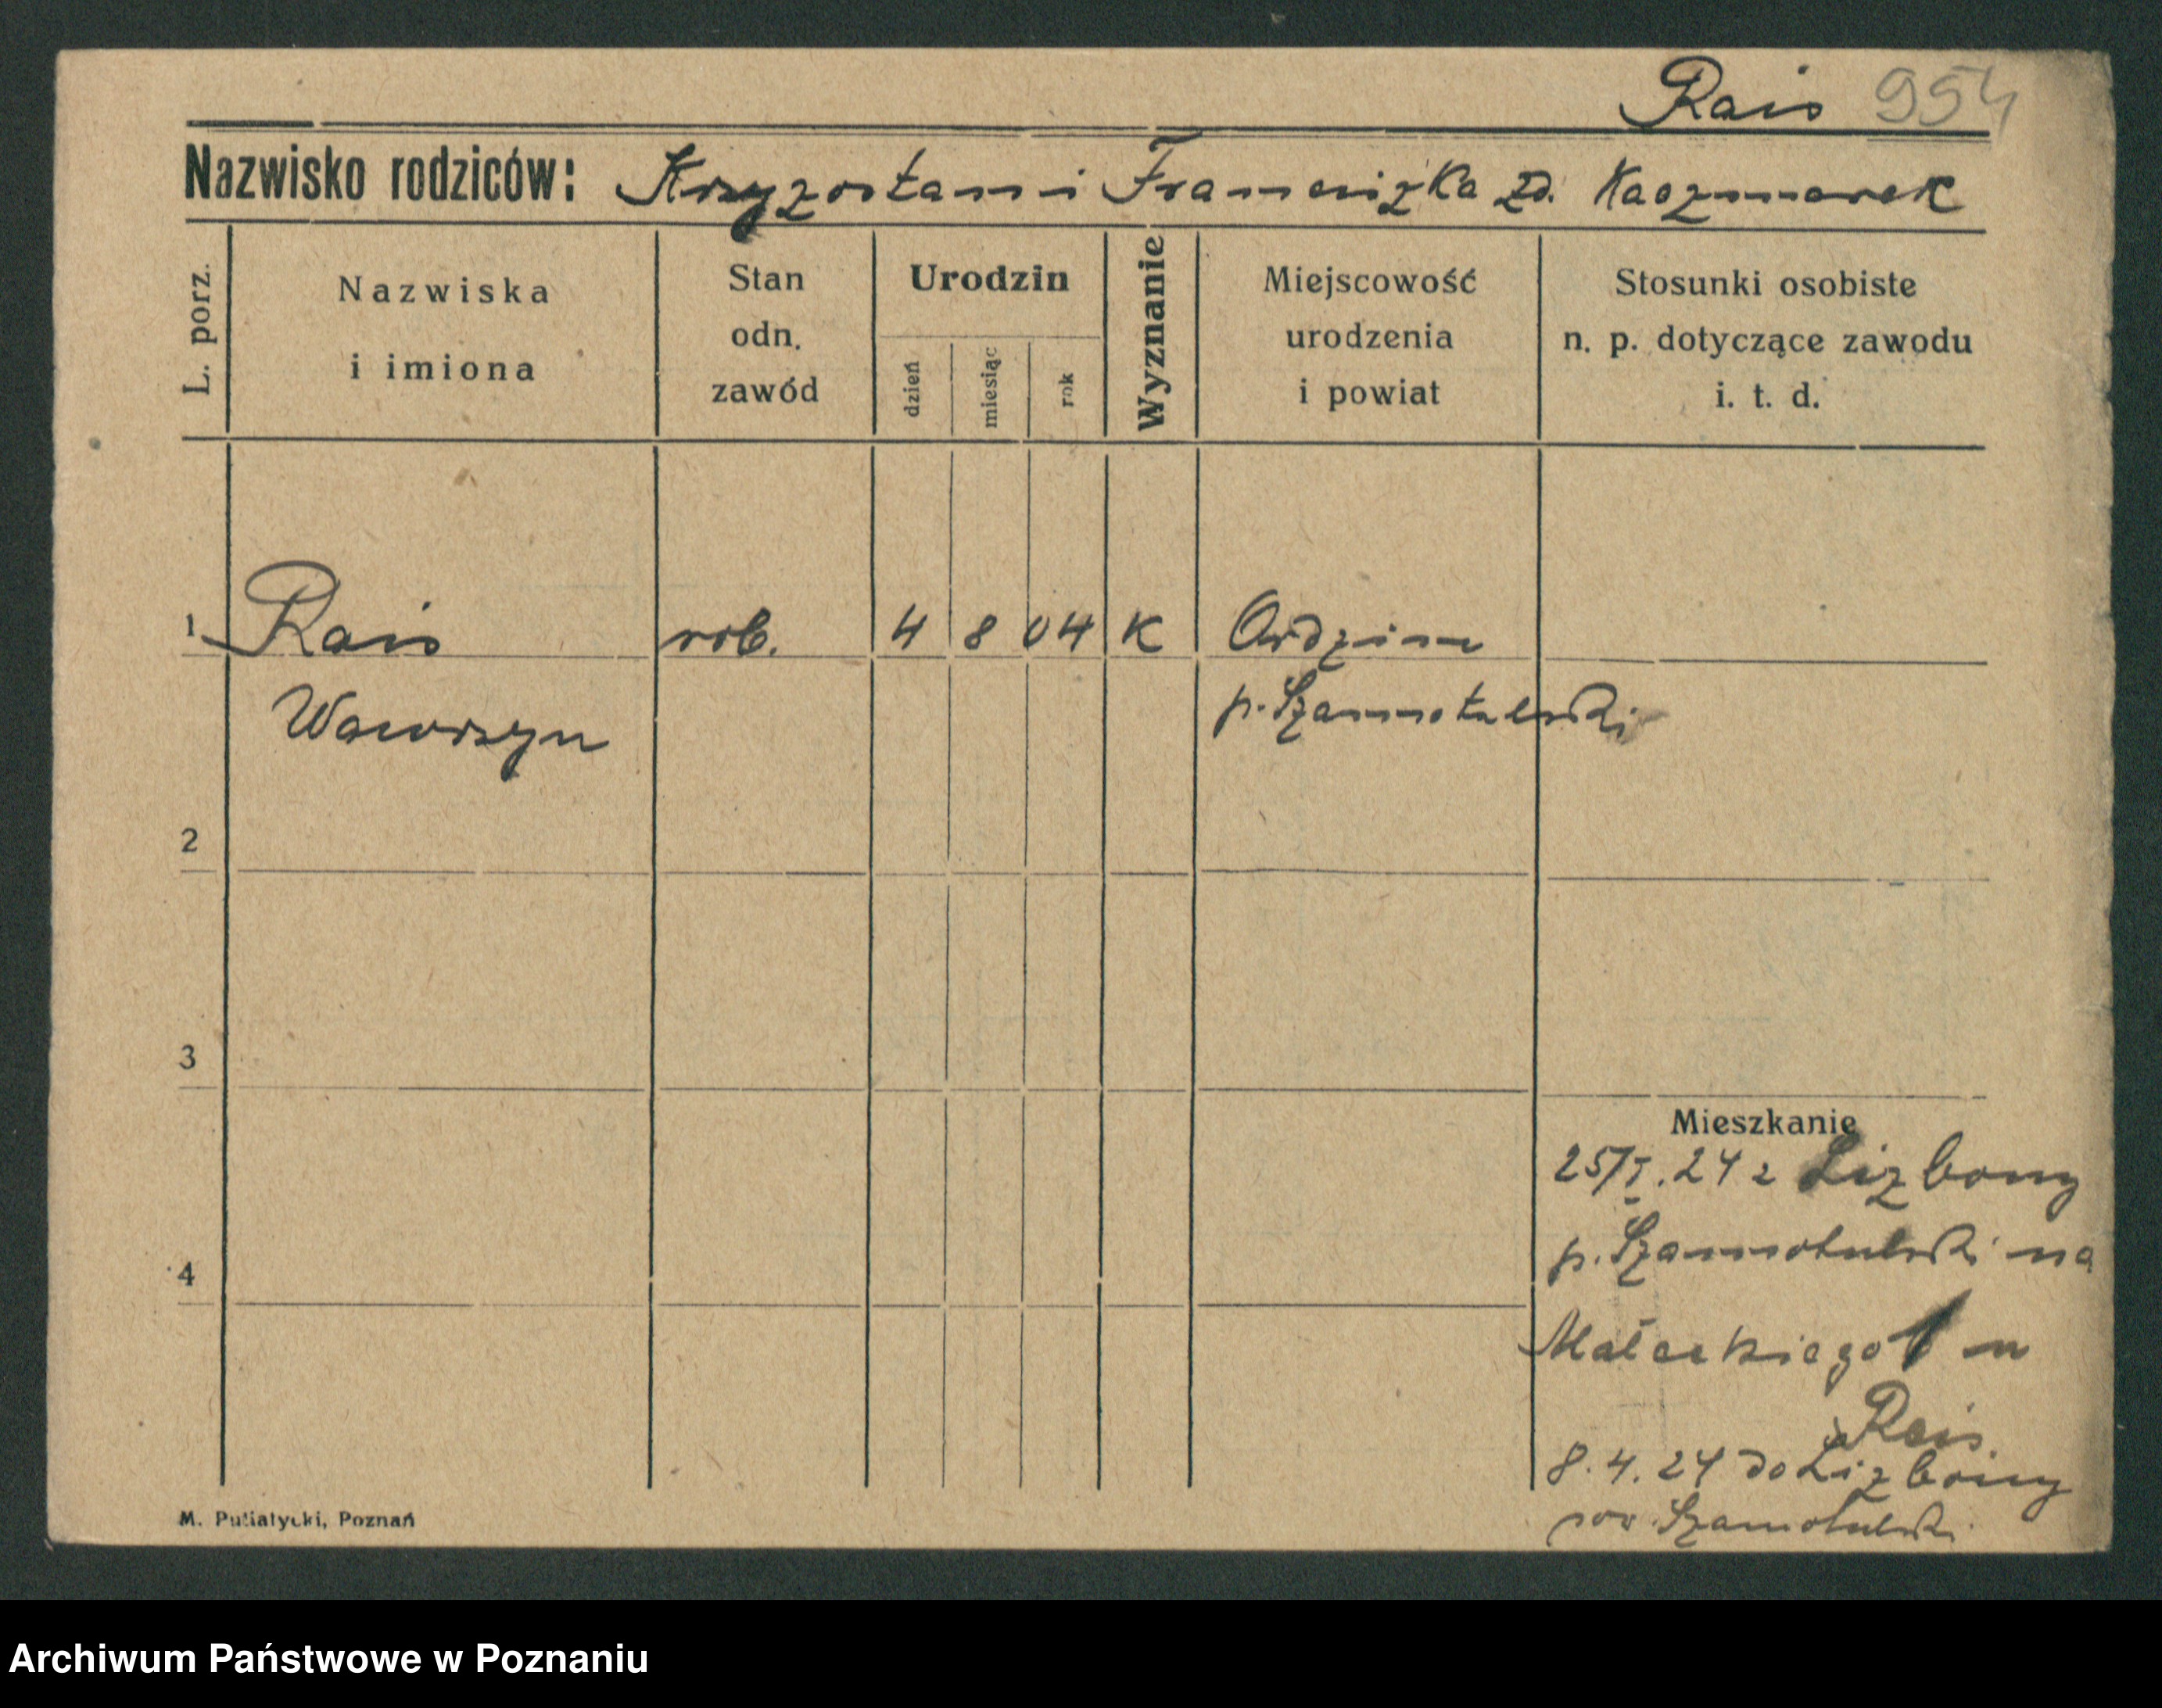 Rais 954
Nazwisko rodziców: Krzyzostam i Franciszka zd. Kaczmarek
L. porz.
Nazwiska
i imiona
Stan
odn.
zawód
Urodzin
dzień
miesiąc
rok
Wyznanie
Miejscowość
urodzenia
i powiat
Stosunki osobiste
n. p. dotyczące zawodu
i. t. d.
1 Rais rob. 4 8 04 K Ordzin
Wawrzyn p. Szamotulski
2
3
Mieszkanie
25/I. 24 z Lizbony
p. Szamotulski na
4
Małeckiego 1 u
Rais
8. 4. 24 do Lizbony
pow. Szamotulski
M. Putiatycki, Poznań
Archiwum Państwowe w Poznaniu